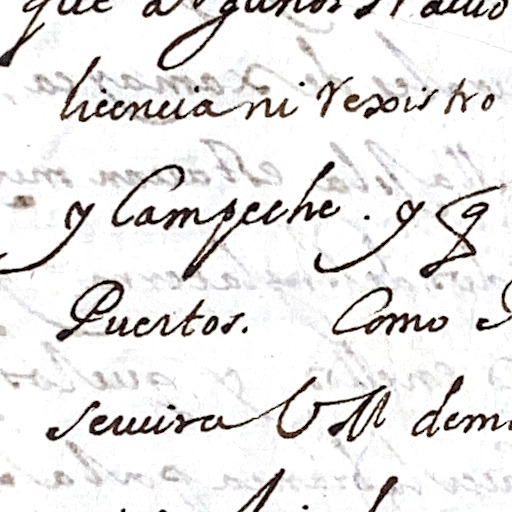 que algunos
licencia ni rexistro
y Campeche. y q
Puertos. Como
seruira VM dem